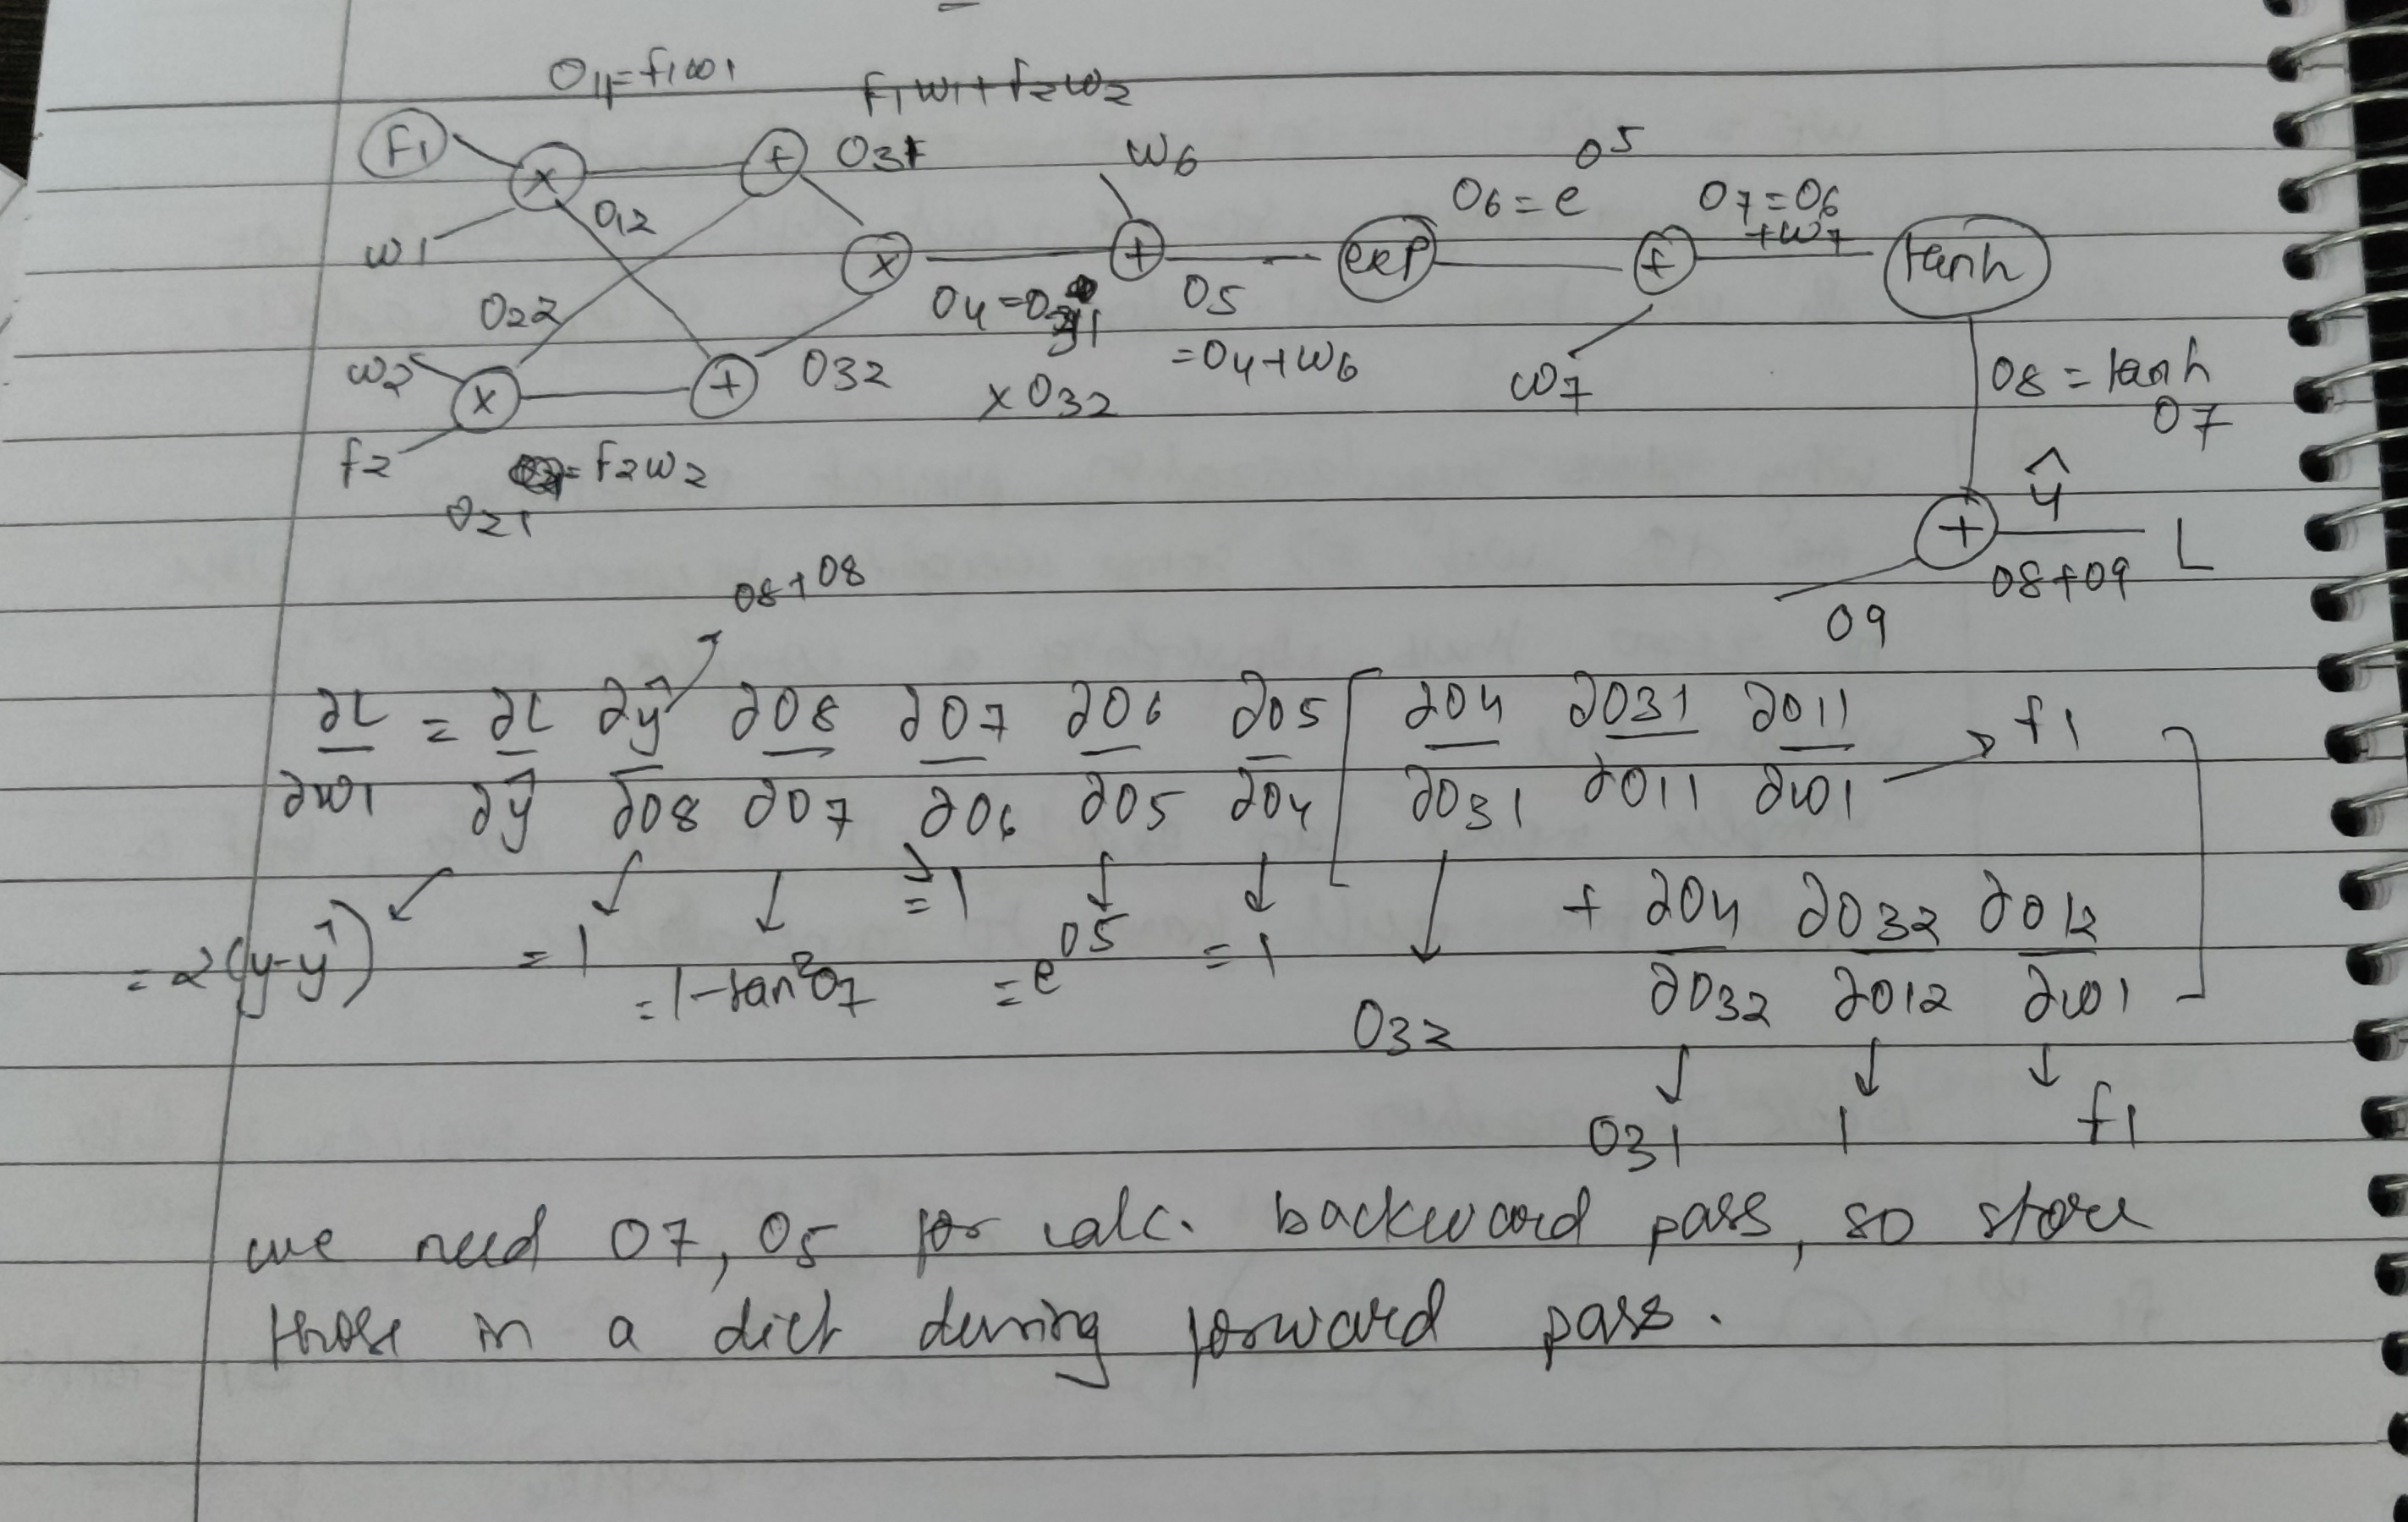 O11=f1w1
f1w1+f2w2
F1 x + O31 w6 O6=e^O5 O7=O6+w7
w1 O12 x O4=O31 xO32 + O5 =O4+w6 exp + tanh
O22 w7 O8=tanh O7
w2 x + O32
f2 O21 =f2w2
+ ŷ L
O8+O9
O9
O8+O8
∂L/∂w1 = ∂L/∂ŷ ∂ŷ/∂O8 ∂O8/∂O7 ∂O7/∂O6 ∂O6/∂O5 ∂O5/∂O4 [ ∂O4/∂O31 ∂O31/∂O11 ∂O11/∂w1 → f1
+ ∂O4/∂O32 ∂O32/∂O12 ∂O12/∂w1 ]
= 2(y-ŷ) = 1 = 1-tan²O7 = 1 = e^O5 = 1 O32
O31 1 f1
we need O7, O5 for calc. backward pass, so store
those in a dict during forward pass.